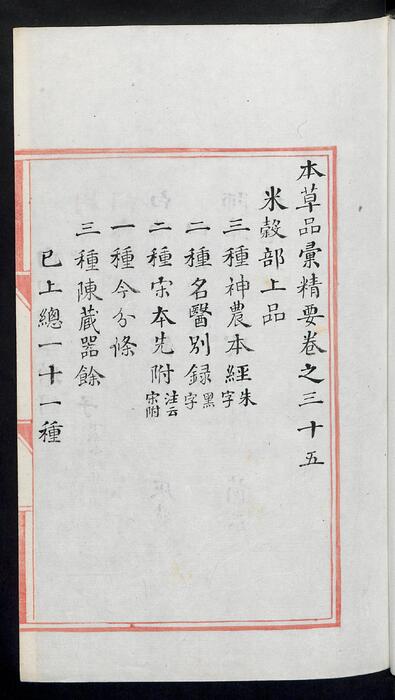 本草品彙精要卷之三十五
米穀部上品
三種神農本經朱字
二種名醫別錄黑字
二種宋本先附注云宋附
一種今分條
三種陳藏器餘
已上總一十一種